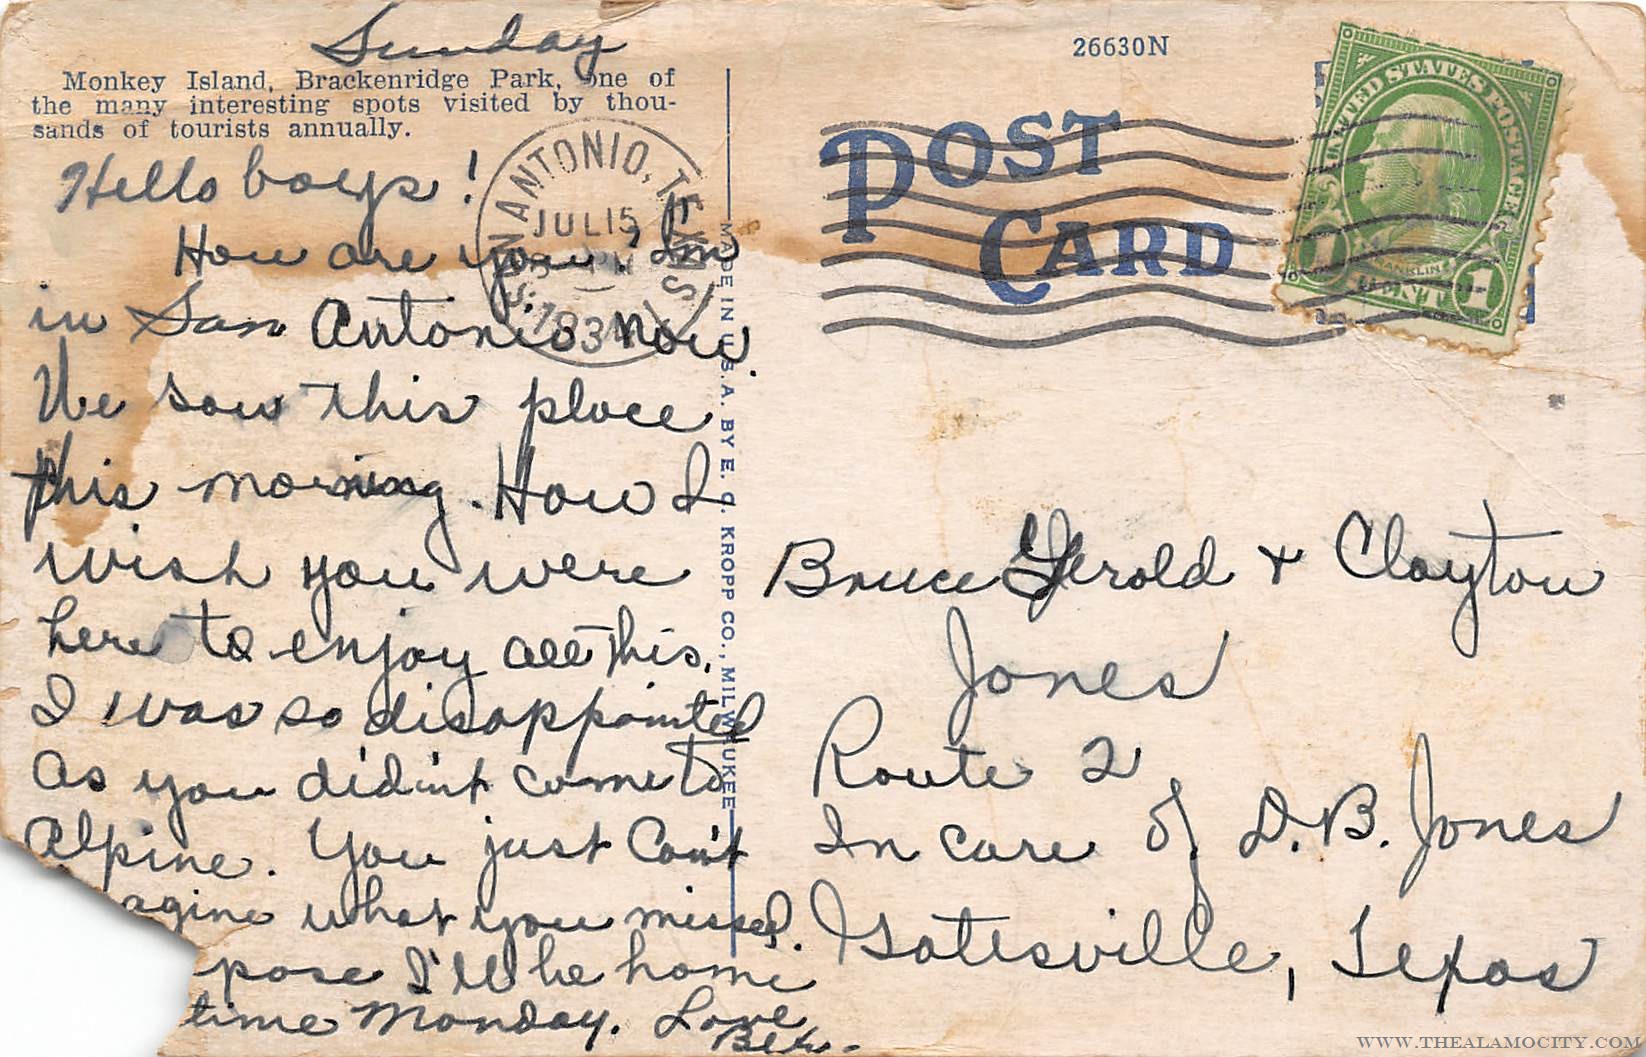 Sunday
Monkey Island, Brackenridge Park, one of
the many interesting spots visited by thou-
sands of tourists annually.
Hello boys!
How are you, Im
in San Antonio now.
We saw this place
this morning. How I
wish you were
here to enjoy all this.
I was so disappointed
as you did'nt come to
Alpine. You just Can't
agine what you missed.
pose I'll be home
time Monday. Love
MADE IN U.S.A. BY E. C. KROPP CO., MILWAUKEE
26630N
POST
CARD
SAN ANTONIO, TEXAS
JUL 15
PM
UNITED STATES POSTAGE
FRANKLIN
1 CENT 1
Bruce Gerold & Clayton
Jones
Route 2
In care of D. B. Jones
Gatesville, Texas
WWW.THEALAMOCITY.COM